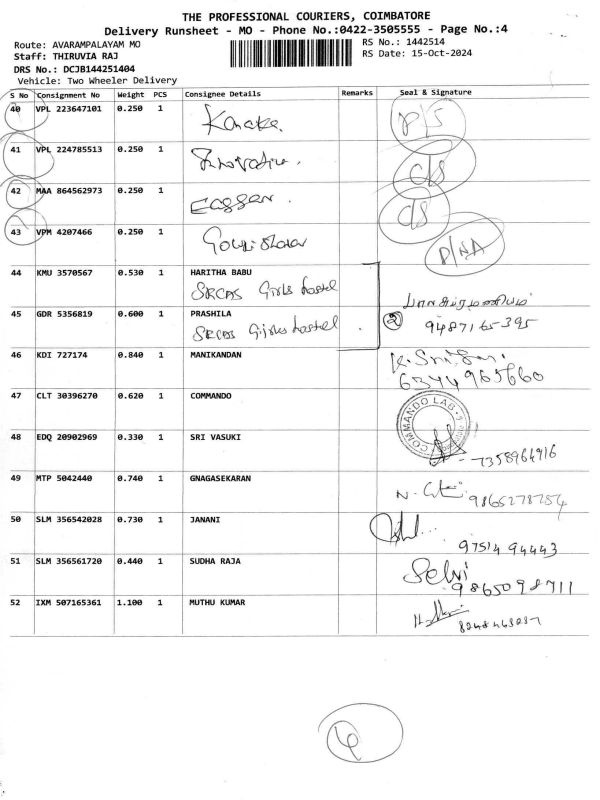 THE PROFESSIONAL COURIERS, COIMBATORE
Delivery Runsheet - MO - Phone No.:0422-3505555 - Page No.:4
Route: AVARAMPALAYAM MO RS No.: 1442514
Staff: THIRUVIA RAJ RS Date: 15-Oct-2024
DRS No.: DCJB144251404
Vehicle: Two Wheeler Delivery
S No Consignment No Weight PCS Consignee Details Remarks Seal & Signature
40 VPL 223647101 0.250 1 Kanaka. P/S
41 VPL 224785513 0.250 1 C/S
42 MAA 864562973 0.250 1 C/S
43 VPM 4207466 0.250 1 D/NA
44 KMU 3570567 0.530 1 HARITHA BABU
SRCAS Girls hostel
பாலசுப்ரமணியம்
45 GDR 5356819 0.600 1 PRASHILA
SRCAS Girls hostel
2 9487165395
46 KDI 727174 0.840 1 MANIKANDAN
6374 965660
47 CLT 30396270 0.620 1 COMMANDO
COMMANDO LAB
48 EDQ 20902969 0.330 1 SRI VASUKI
7358964916
49 MTP 5042440 0.740 1 GNAGASEKARAN
9865278754
50 SLM 356542028 0.730 1 JANANI
97514 94443
51 SLM 356561720 0.440 1 SUDHA RAJA Selvi
9865098711
52 IXM 507165361 1.100 1 MUTHU KUMAR